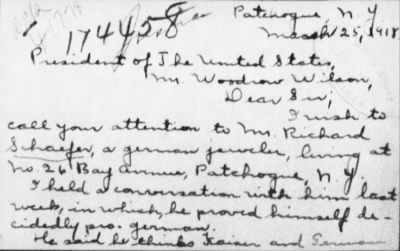 174458
Patchogue, N. Y.
March 25, 1918
President of The United States,
Mr. Woodrow Wilson,
Dear Sir;
I wish to
call your attention to Mr. Richard
Schaefer, a german jeweler, living at
No. 26 Bay Avenue, Patchogue, N. Y.
I held a conversation with him last
week, in which, he proved himself de-
cidedly pro. german.
He said he thinks Kaiser and German